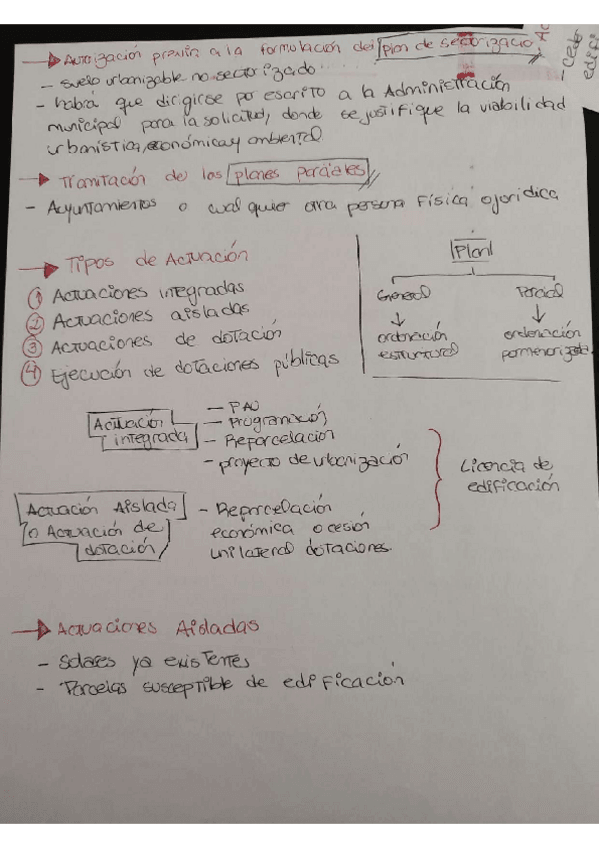 Autorización previa a la formulación del plan de sectorizació
- suelo urbanizable no sectorizado
- habrá que dirigirse por escrito a la Administración
municipal para la solicitud, donde se justifique la viabilidad
urbanística, económica y ambiental
Tramitación de los planes parciales
- Ayuntamientos o cualquier otra persona física o jurídica
Tipos de Actuación
① Actuaciones integradas
② Actuaciones aisladas
③ Actuaciones de dotación
④ Ejecución de dotaciones públicas
Plan
General Parcial
ordenación ordenación
estructural pormenorizada
Actuación
integrada
- PAU
- Programación
- Reparcelación
- proyecto de urbanización
Actuación Aislada
o Actuación de
dotación
- Reparcelación
económica o cesión
unilateral dotaciones.
Licencia de
edificación
Actuaciones Aisladas
- Solares ya existentes
- Parcelas susceptible de edificación